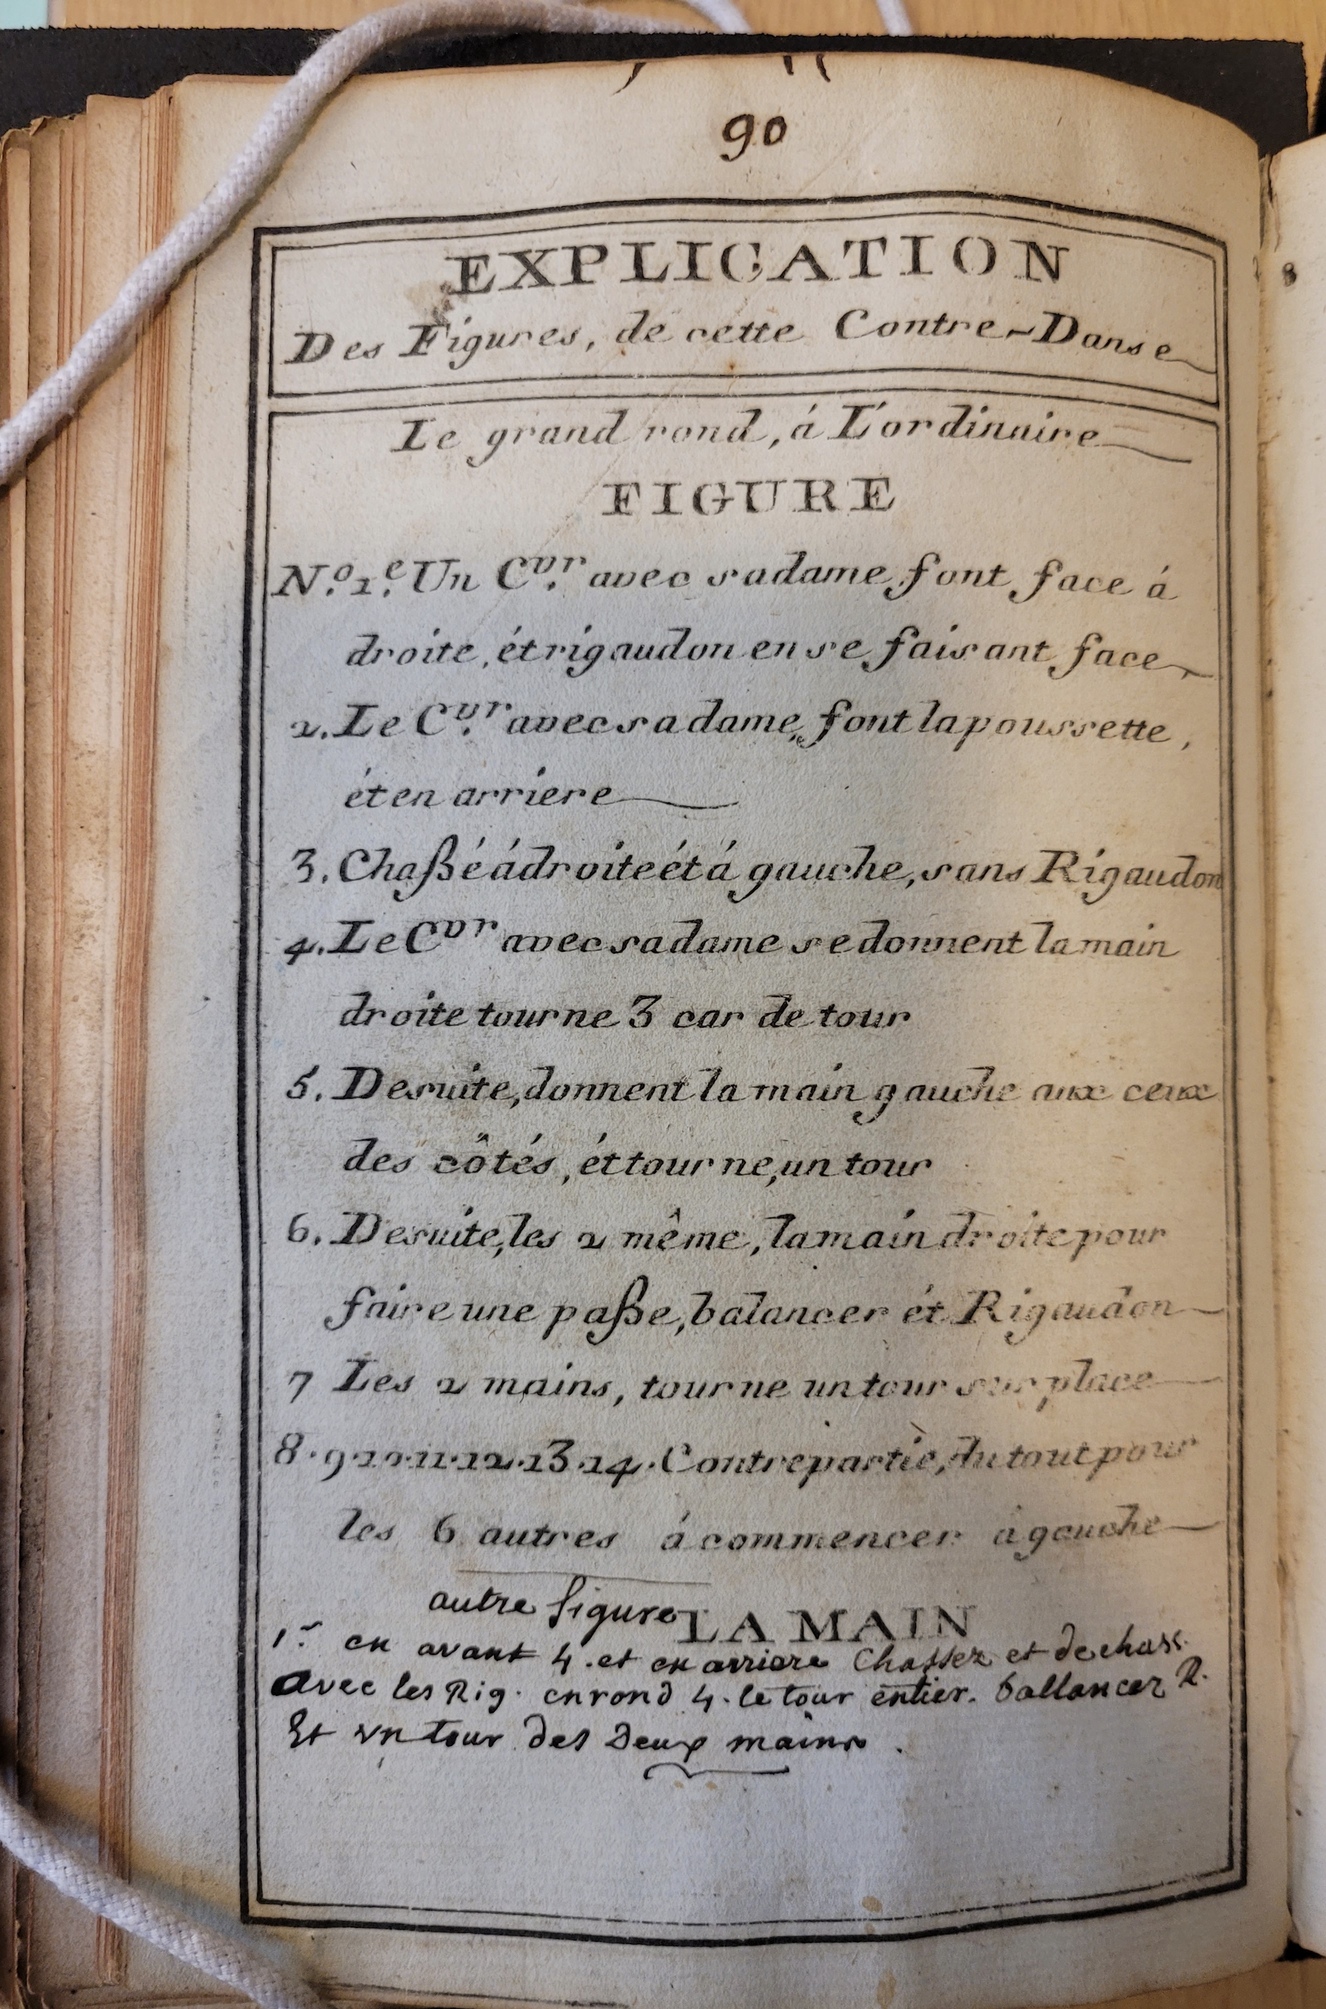 90
EXPLICATION
Des Figures, de cette Contre-Danse
Le grand rond, á L'ordinaire
FIGURE
N.º 1.e Un C.vr avec sa dame, font face á
droite, ét rigaudon en se faisant face
2. Le C.vr avec sa dame, font la poussette,
ét en arriere
3. Chaßé á droite ét á gauche, sans Rigaudon
4. Le Cvr avec sa dame se donnent la main
droite tourne 3 car de tour
5. Desuite, donnent la main gauche aux ceux
des côtés, ét tourne, un tour
6. Desuite, les 2 même, la main droite pour
faire une paße, balancer ét Rigaudon
7 Les 2 mains, tourne un tour sur place
8.9.10.11.12.13.14. Contrepartiè, du tout pour
les 6 autres á commencer á gauche
autre figure LA MAIN
1r en avant 4. et en arriere Chassez et dechass.
avec les Rig. en rond 4. le tour entier. ballancez R.
Et vn tour des deux mains.